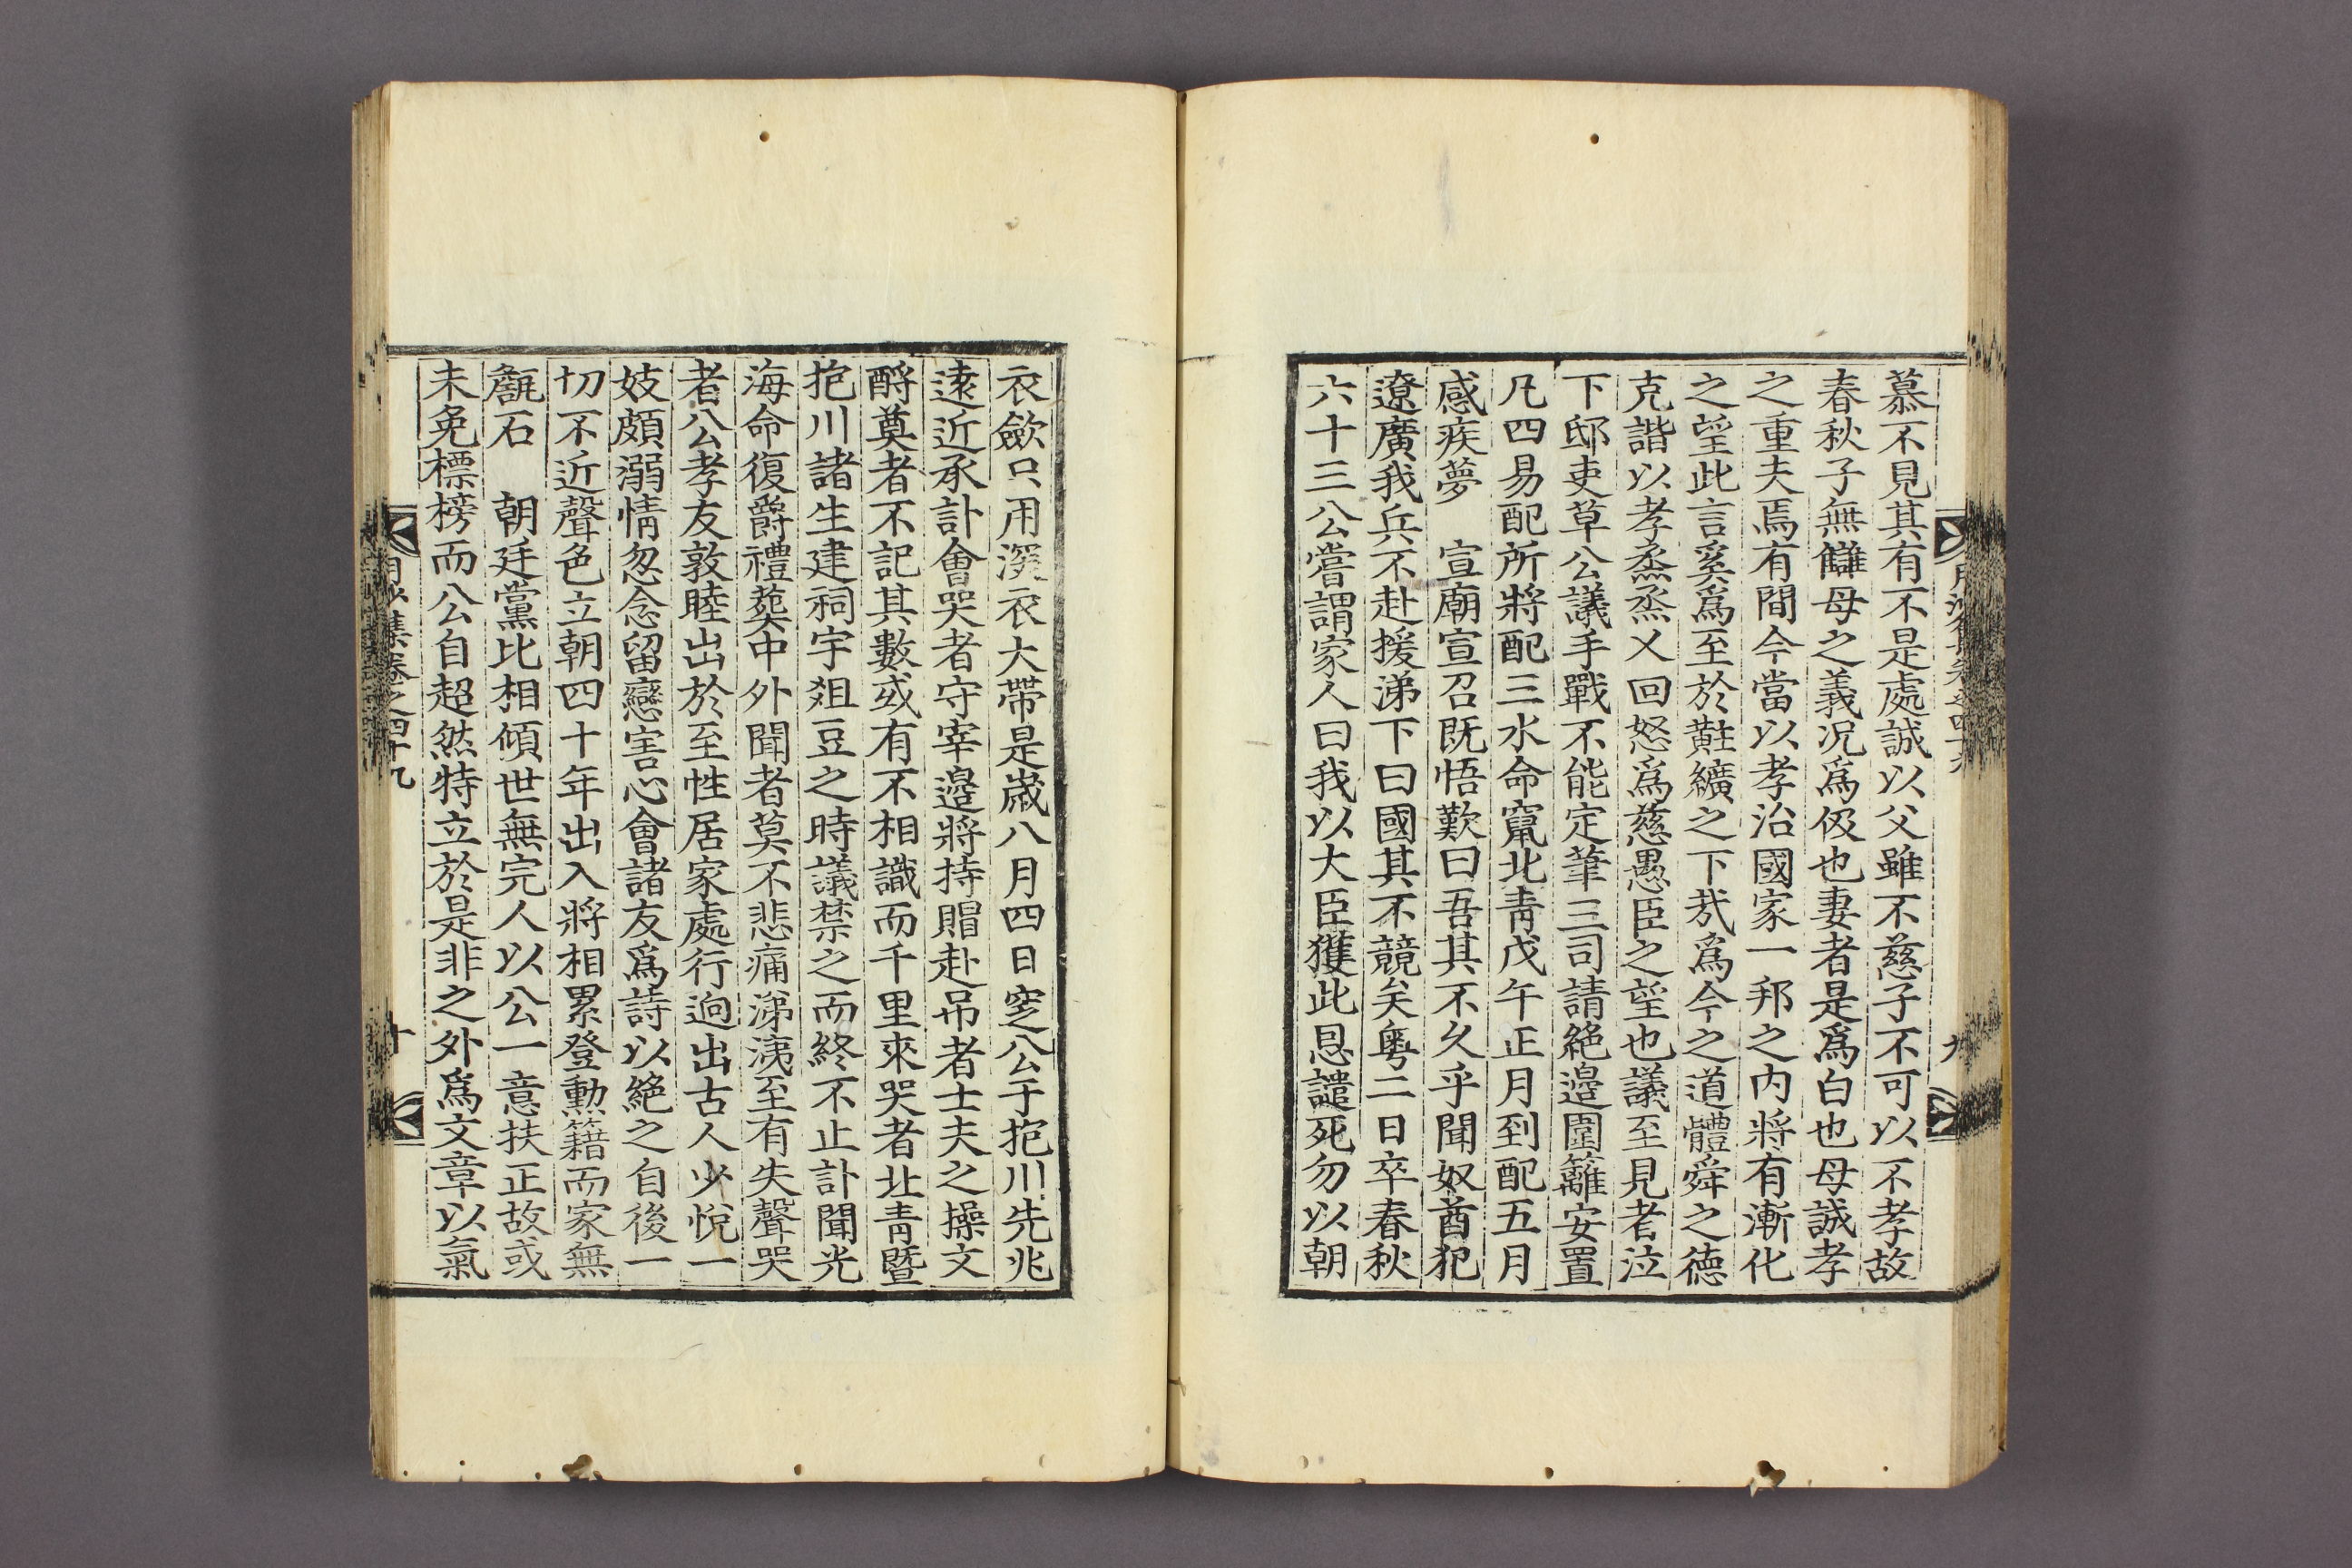 慕不見其有不是處誠以父雖不慈子不可以不孝故
春秋子無讎母之義況爲伋也妻者是爲白也母誠孝
之重夫焉有間今當以孝治國家一邦之內將有漸化
之望此言奚爲至於黈纊之下㢤爲今之道體舜之德
克諧以孝烝烝乂回怒爲慈愚臣之望也議至見者泣
下邸吏草公議手戰不能定筆三司請絶邉圍籬安置
凡四易配所將配三水命竄北靑戊午正月到配五月
感疾夢 宣廟宣召旣悟歎曰吾其不久乎聞奴酋犯
遼廣我兵不赴援涕下曰國其不競矣粤二日卒春秋
六十三公嘗謂家人曰我以大臣獲此恩譴死勿以朝
月沙集卷之四十九
九
衣歛只用深衣大帶是歲八月四日窆公于抱川先兆
遠近承訃會哭者守宰邉將持賵赴吊者士夫之操文
酹奠者不記其數或有不相識而千里來哭者北靑曁
抱川諸生建祠宇俎豆之時議禁之而終不止訃聞光
海命復爵禮葬中外聞者莫不悲痛涕洟至有失聲哭
者公孝友敦睦出於至性居家處行逈出古人少悅一
妓頗溺情忽念留戀害心會諸友爲詩以絶之自後一
切不近聲色立朝四十年出入將相累登勳籍而家無
甔石 朝廷黨比相傾世無完人以公一意扶正故或
未免標榜而公自超然特立於是非之外爲文章以氣
月沙集卷之四十九
十